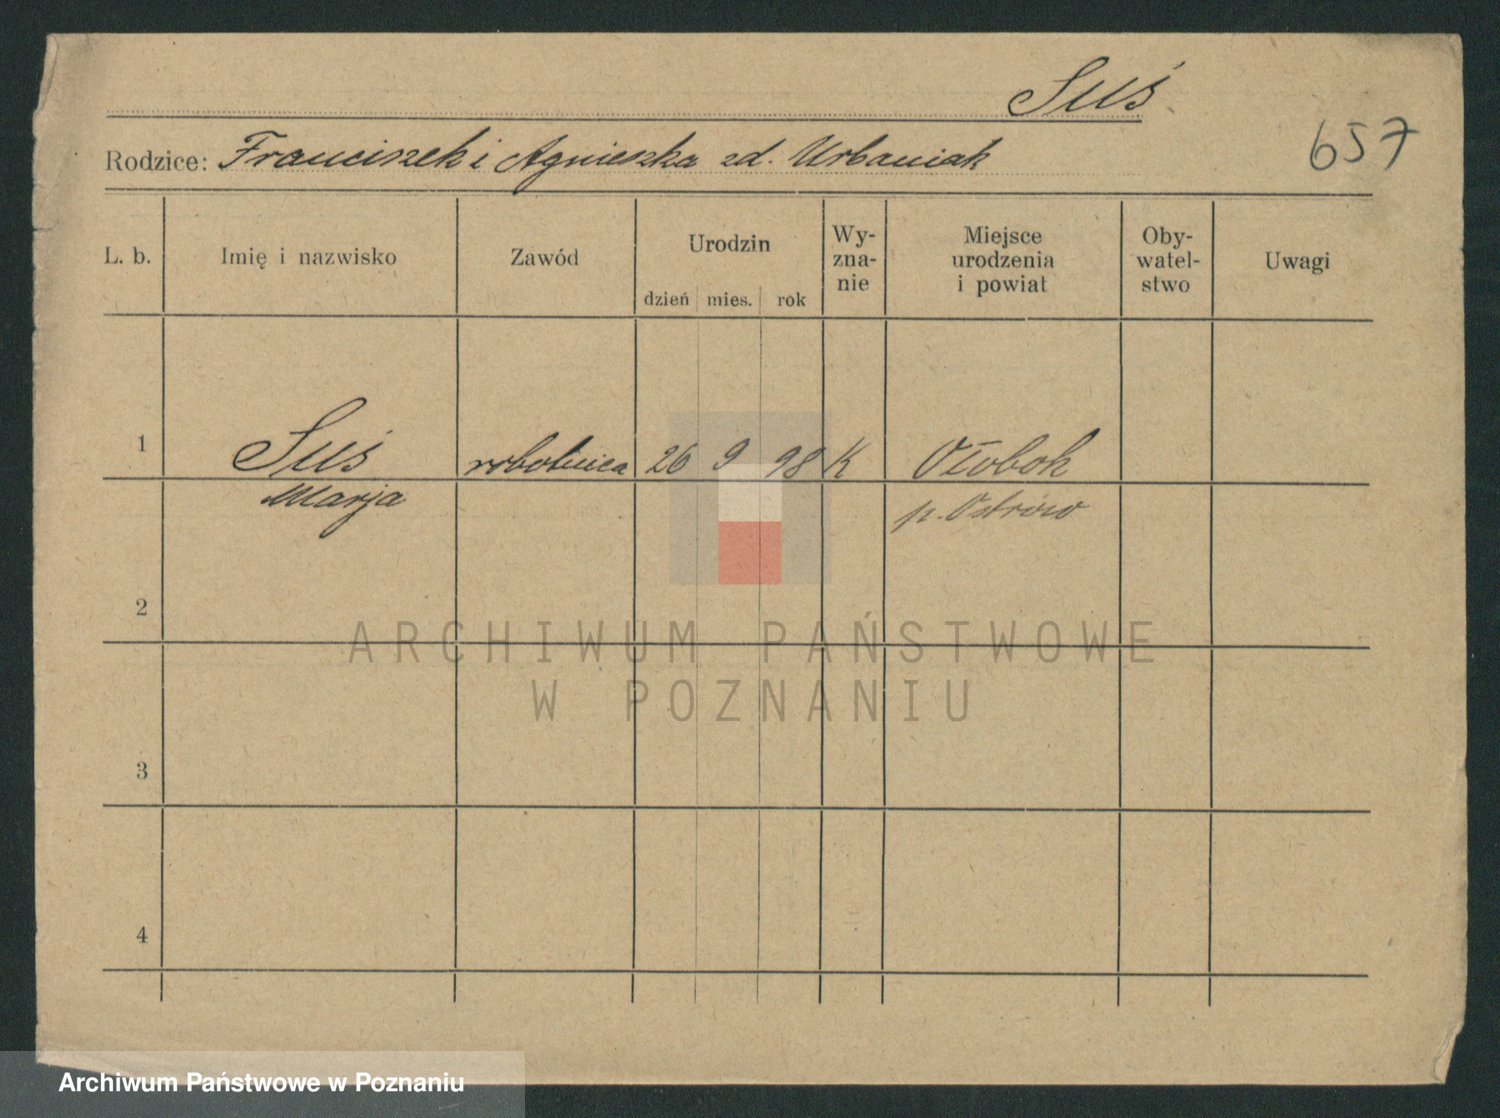 Suś
657
Rodzice: Franciszek i Agnieszka zd. Urbaniak
L. b. Imię i nazwisko Zawód Urodzin dzień mies. rok Wy-zna-nie Miejsce urodzenia i powiat Oby-watel-stwo Uwagi
1 Suś robotnica 26 9 98 K Ołobok
Marja p. Ostrów
2
ARCHIWUM PAŃSTWOWE
W POZNANIU
3
4
Archiwum Państwowe w Poznaniu